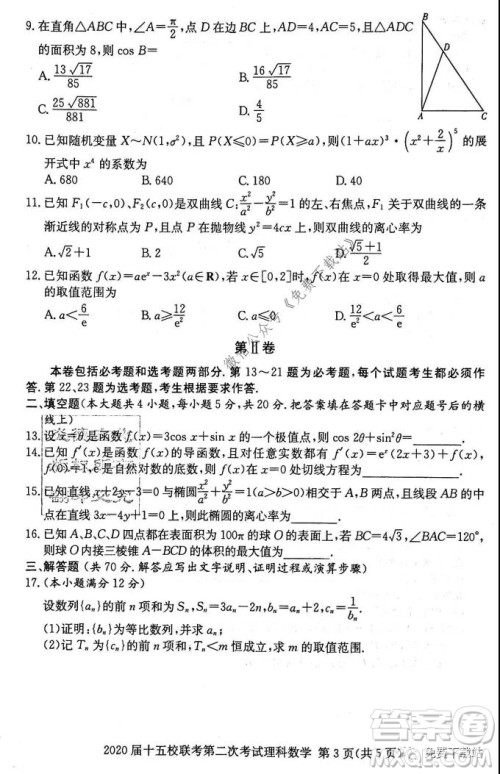 9. 在直角△ABC 中,∠A=π/2,点 D 在边 BC 上,AD=4,AC=5,且△ADC
的面积为 8,则 cos B=
A. 13√17/85 B. 16√17/85
C. 25√881/881 D. 4/5
B
D
A
C
10. 已知随机变量 X~N(1,σ²),且 P(X≤0)=P(X≥a),则(1+ax)³·(x²+2/x)⁵的展
开式中 x⁴ 的系数为
A. 680 B. 640 C. 180 D. 40
11. 已知 F₁(-c,0)、F₂(c,0)是双曲线 C:x²/a²-y²/b²=1 的左、右焦点,F₁ 关于双曲线的一条
渐近线的对称点为 P,且点 P 在抛物线 y²=4cx 上,则双曲线的离心率为
A. √2+1 B. 2 C. √5 D. (√5+1)/2
12. 已知函数 f(x)=aeˣ-3x²(a∈R),若 x∈[0,2]时,f(x)在 x=0 处取得最大值,则 a
的取值范围为
A. a<6/e B. a≥12/e² C. a≤0 D. a<12/e²
第Ⅱ卷
本卷包括必考题和选考题两部分. 第 13~21 题为必考题,每个试题考生都必须作
答. 第 22、23 题为选考题,考生根据要求作答.
二、填空题(本大题共 4 小题,每小题 5 分,共 20 分. 把答案填在答题卡中对应题号后的
横线上)
13. 设 x=θ 是函数 f(x)=3cos x+sin x 的一个极值点,则 cos 2θ+sin²θ=
14. 已知 f′(x)是函数 f(x)的导函数,且对任意实数都有 f′(x)=eˣ(2x+3)+f(x),
f(0)=1,e 是自然对数的底数,则 f(x)在 x=0 处的切线方程为
15. 已知直线 x+2y-3=0 与椭圆 x²/a²+y²/b²=1(a>b>0)相交于 A,B 两点,且线段 AB 的中
点在直线 3x-4y+1=0 上,则此椭圆的离心率为
16. 已知 A,B,C,D 四点都在表面积为 100π 的球 O 的表面上,若 BC=4√3,∠BAC=120°,
则球 O 内接三棱锥 A-BCD 的体积的最大值为
三、解答题(共 70 分. 解答应写出文字说明、证明过程或演算步骤)
17. (本小题满分 12 分)
设数列{aₙ}的前 n 项和为 Sₙ,Sₙ=3aₙ-2n,bₙ=aₙ+2,cₙ=1/bₙ.
(1)证明:{bₙ}为等比数列,并求 bₙ;
(2)记 Tₙ 为{cₙ}的前 n 项和,Tₙ<m 恒成立,求 m 的取值范围.
2020 届十五校联考第二次考试理科数学 第 3 页(共 5 页)